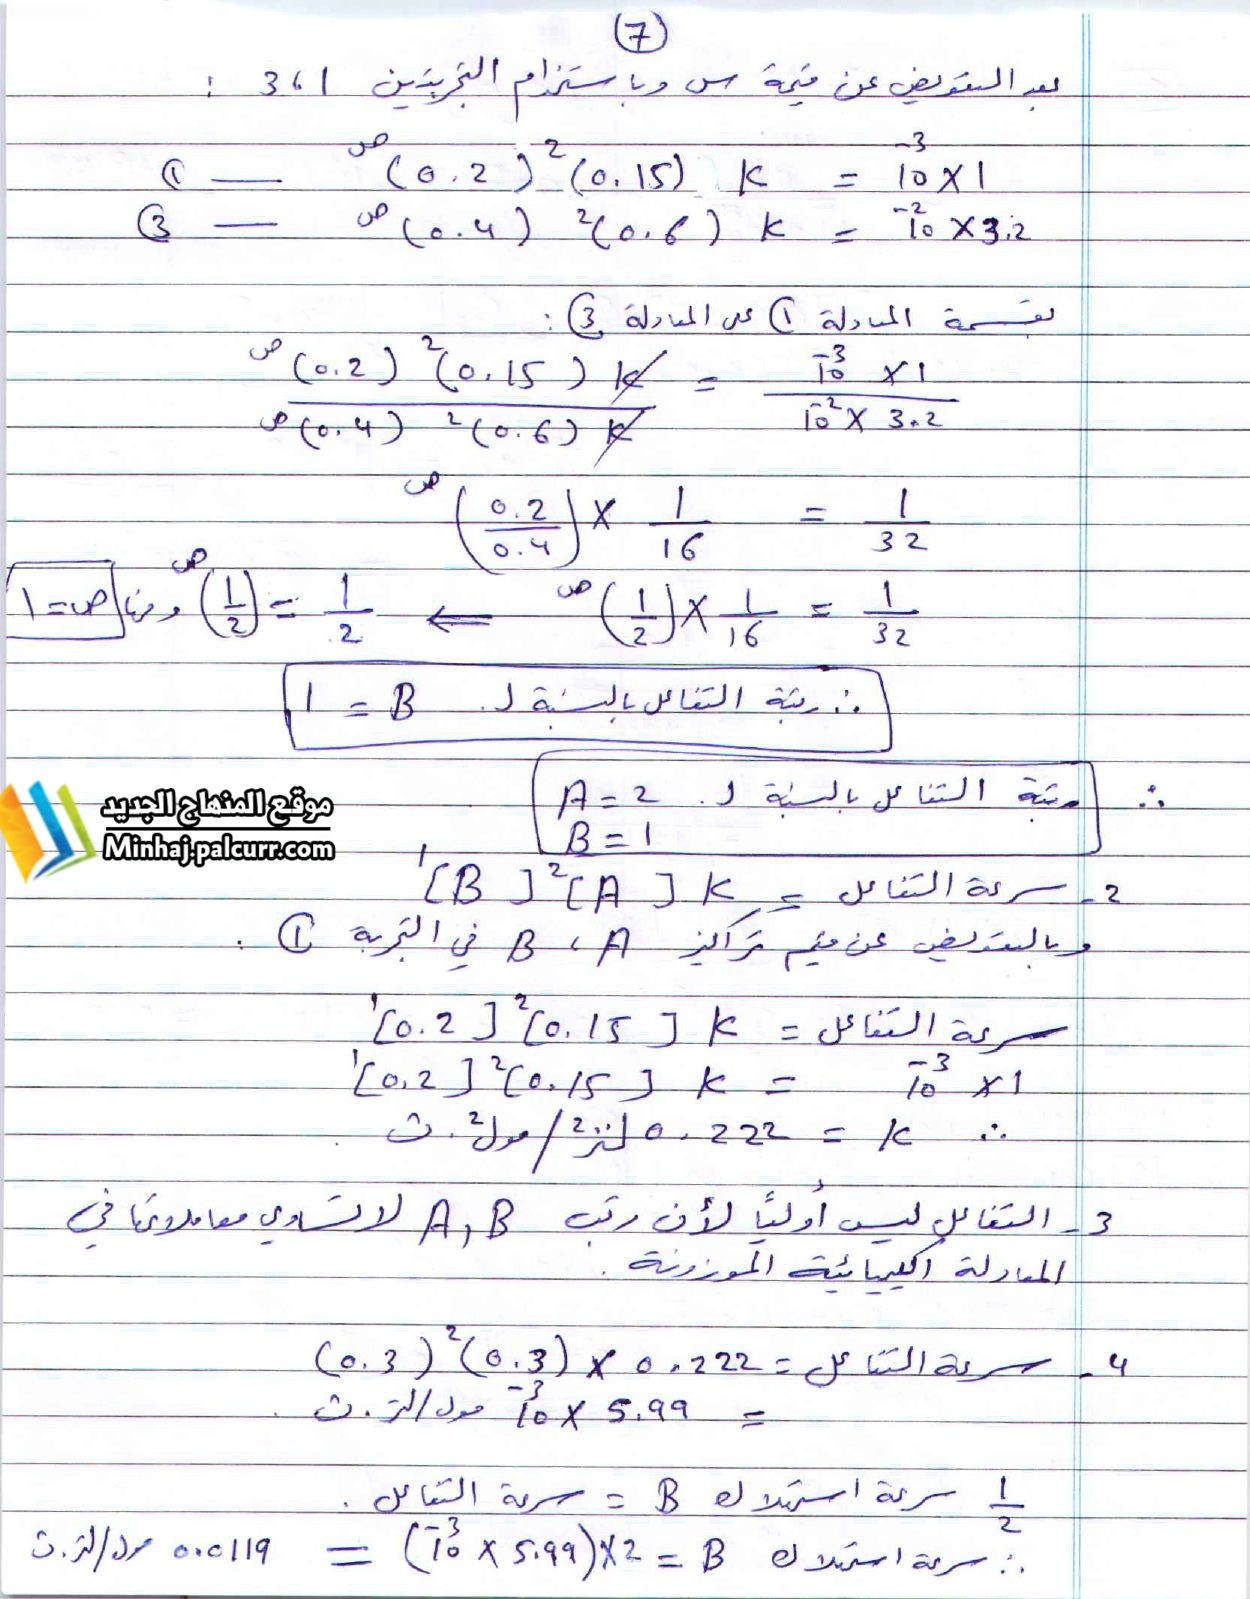 (7)
بعد التعويض عن قيمة س وباستخدام التجربتين 1 ، 3 :
1 × 10⁻³ = K (0.15)² (0.2)ص — ①
3.2 × 10⁻² = K (0.6)² (0.4)ص — ③
بقسمة المعادلة ① على المعادلة ③ :
1 × 10⁻³ / 3.2 × 10⁻² = K (0.15)² (0.2)ص / K (0.6)² (0.4)ص
1/32 = 1/16 × (0.2/0.4)ص
1/32 = 1/16 × (1/2)ص ⇐ 1/2 = (1/2)ص ومنها ص = 1
∴ رتبة التفاعل بالنسبة لـ B = 1
∴ رتبة التفاعل بالنسبة لـ A = 2
B = 1
موقع المنهاج الجديد
Minhaj.palcurr.com
2- سرعة التفاعل = K [A]² [B]¹
وبالتعويض عن قيم تراكيز A ، B في التجربة ① :
سرعة التفاعل = K [0.15]² [0.2]¹
1 × 10⁻³ = K [0.15]² [0.2]¹
∴ K = 0.222 لتر² / مول² . ث .
3- التفاعل ليس أوليًا لأن رتب A , B لا تساوي معاملاتها في
المعادلة الكيميائية الموزونة .
4- سرعة التفاعل = 0.222 × (0.3)² (0.3)
= 5.99 × 10⁻³ مول/لتر . ث .
1/2 سرعة استهلاك B = سرعة التفاعل .
∴ سرعة استهلاك B = 2 × (5.99 × 10⁻³) = 0.0119 مول/لتر . ث